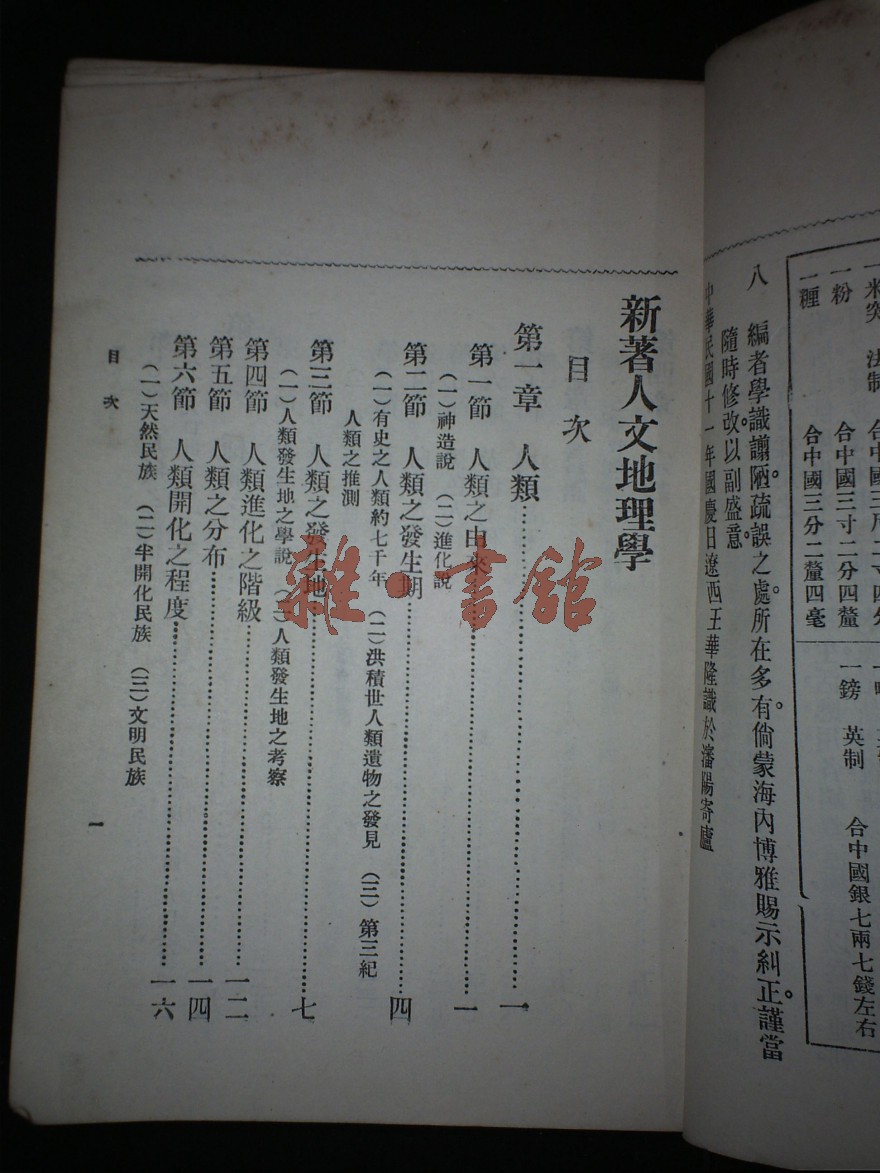 米突 法制 合中國三尺二寸四分
一粉 合中國三寸二分四釐
一糎 合中國三分二釐四毫
一鎊 英制 合中國銀七兩七錢左右
八 編者學識譾陋。疏誤之處。所在多有。倘蒙海內博雅賜示糾正。謹當
隨時修改。以副盛意。
中華民國十一年國慶日遼西王華隆識於瀋陽寄廬
新著人文地理學
目次
第一章 人類……一
第一節 人類之由來……一
(一)神造說 (二)進化說
第二節 人類之發生期……四
(一)有史之人類約七千年 (二)洪積世人類遺物之發見 (三)第三紀
人類之推測
第三節 人類之發生地……七
(一)人類發生地之學說 (二)人類發生地之考察
第四節 人類進化之階級……一二
第五節 人類之分布……一四
第六節 人類開化之程度……一六
(一)天然民族 (二)半開化民族 (三)文明民族
目次
一
雜·書館